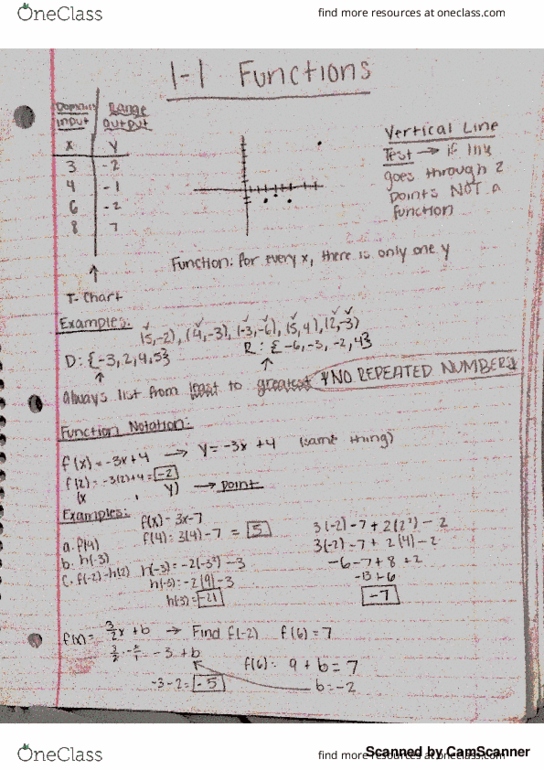 OneClass
find more resources at oneclass.com
1-1 Functions
Domain Range
input output
x y
3 -2
4 -1
6 -2
8 7
T-Chart
Vertical Line
Test → if line
goes through 2
points NOT a
function
Function: For every x, there is only one y
Examples:
(5,-2), (4,-3), (-3,-6), (5,4), (2,-3)
D: {-3,2,4,5} R: {-6,-3,-2,4}
always list from least to greatest * NO REPEATED NUMBERS
Function Notation:
f(x) = -3x+4 → y = -3x +4 (same thing)
f(2) = -3(2)+4 = -2
(x , y) → point
Examples:
f(x) = 3x-7
a. f(4) f(4) = 3(4) -7 = 5
b. h(-3) h(-3) = -2(-3²) -3
c. f(-2) - h(2) h(-3) = -2(9) -3
h(-3) = -21
3(-2) -7 + 2(2²) - 2
3(-2) -7 + 2(4) -2
-6 -7 + 8 + 2
-13 + 6
-7
f(x) = 3/2 x + b → Find f(-2) f(6) = 7
-3 + b
f(6): 9 + b = 7
-3 -2 = -5 b = -2
OneClass
find more resources at oneclass.com
Scanned by CamScanner